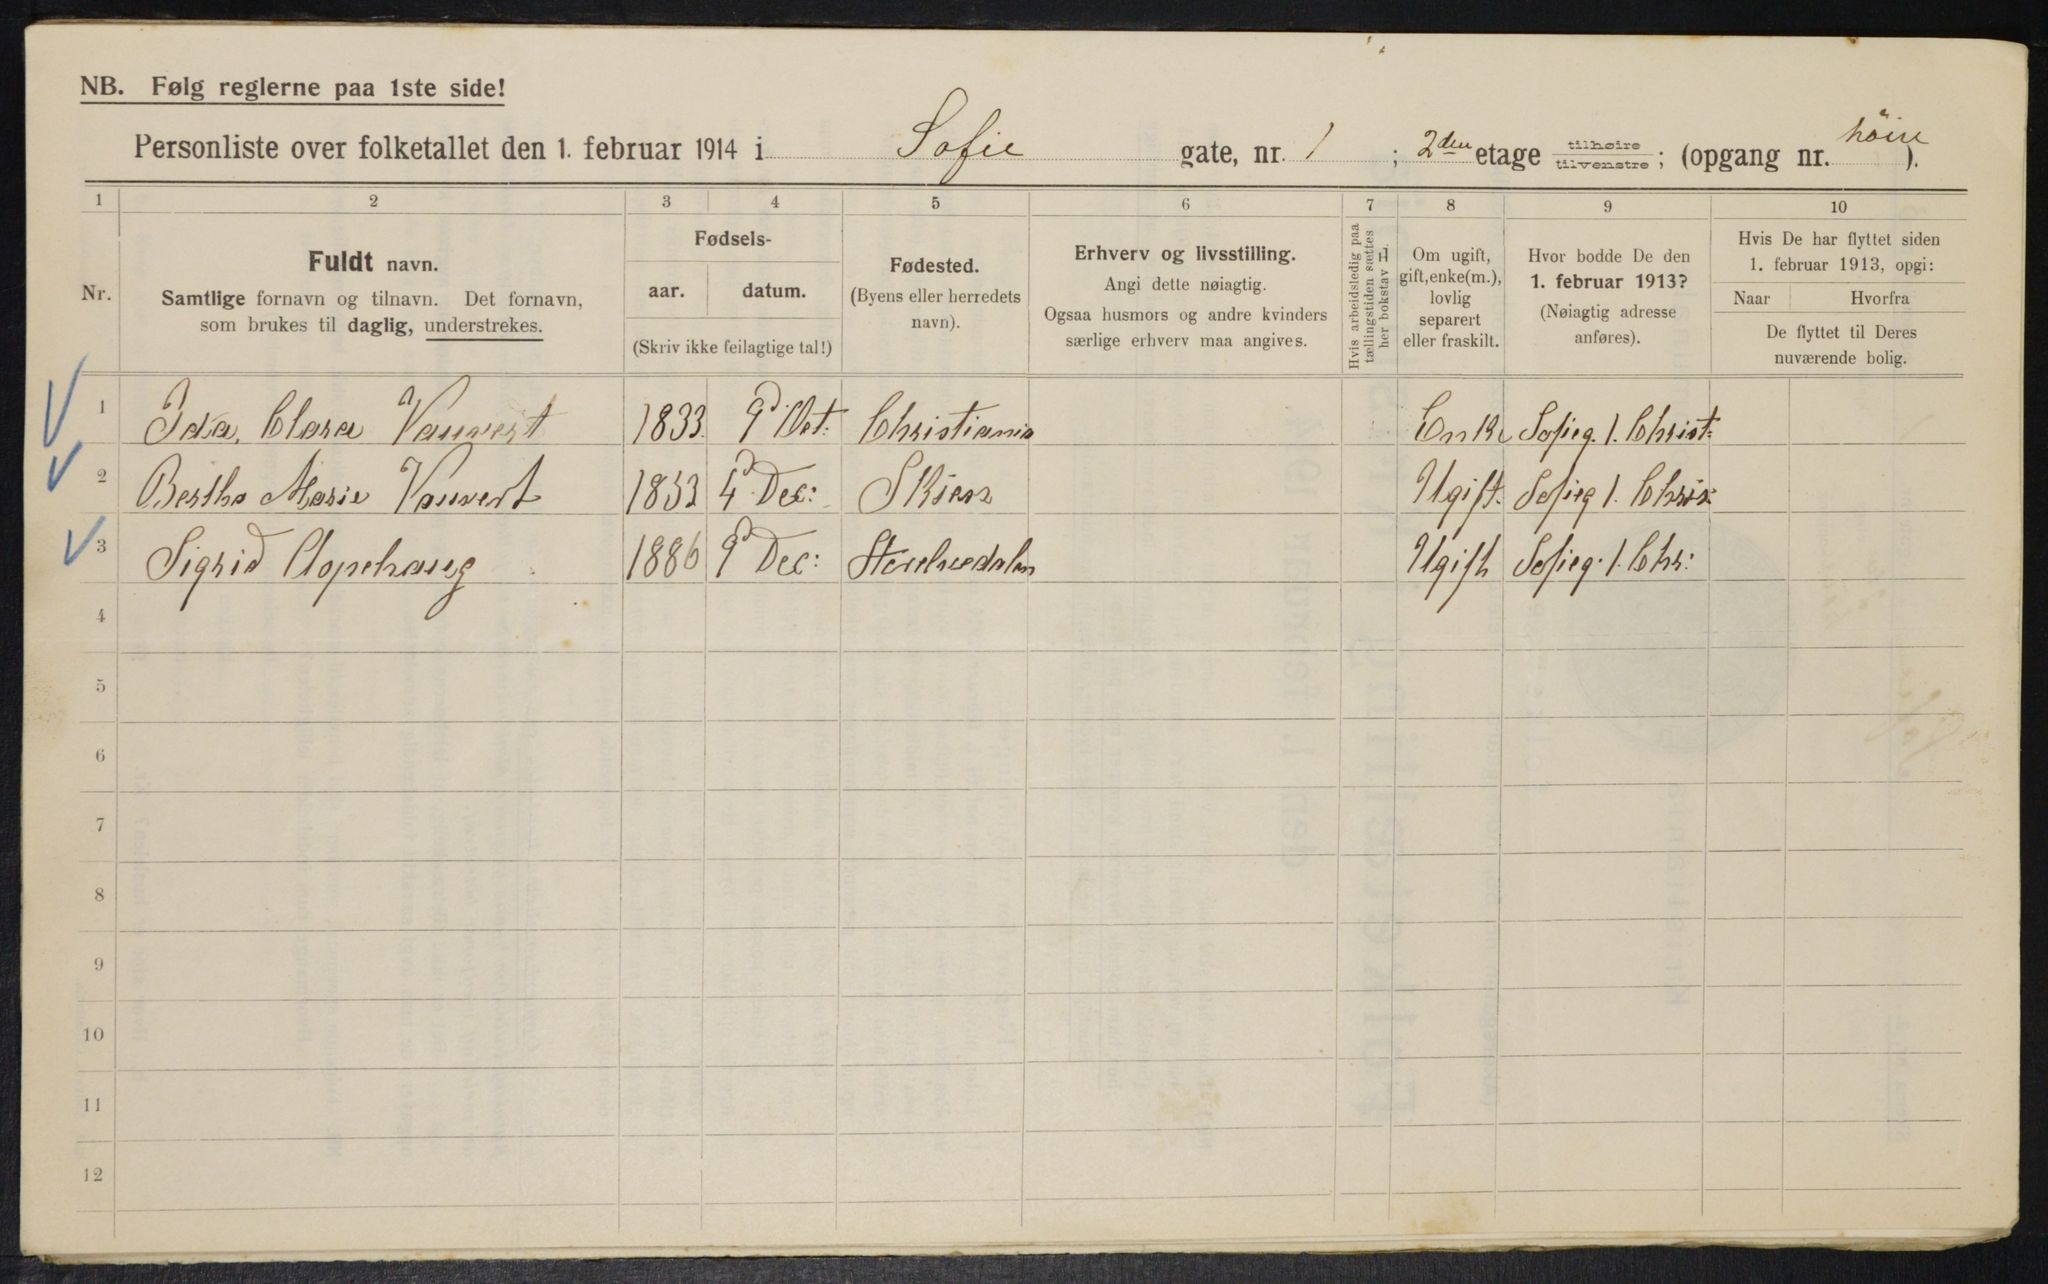 NB. Følg reglerne paa 1ste side!
Personliste over folketallet den 1. februar 1914 i Sofie gate, nr. 1 ; 2den etage tilhøire tilvenstre ; (opgang nr. höire ).
1 2 3 4 5 6 7 8 9 10
Nr.
Fuldt navn.
Samtlige fornavn og tilnavn. Det fornavn,
som brukes til daglig, understrekes.
Fødsels-
aar. datum.
(Skriv ikke feilagtige tal!)
Fødested.
(Byens eller herredets
navn).
Erhverv og livsstilling.
Angi dette nøiagtig.
Ogsaa husmors og andre kvinders
særlige erhverv maa angives.
Hvis arbeidsledig paa
tællingstiden sættes
her bokstav L.
Om ugift,
gift, enke(m.),
lovlig
separert
eller fraskilt.
Hvor bodde De den
1. februar 1913?
(Nøiagtig adresse
anføres).
Hvis De har flyttet siden
1. februar 1913, opgi:
Naar Hvorfra
De flyttet til Deres
nuværende bolig.
1 Ida Clara Vauvert 1833 9d Oct: Christiania Enke Sofieg. 1. Christ:
2 Bertha Marie Vauvert 1853 4d Dec: Skien Ugift. Sofieg 1. Chris:
3 Sigrid 1886 9d Dec: Ugift Sofieg. 1. Chr:
4
5
6
7
8
9
10
11
12